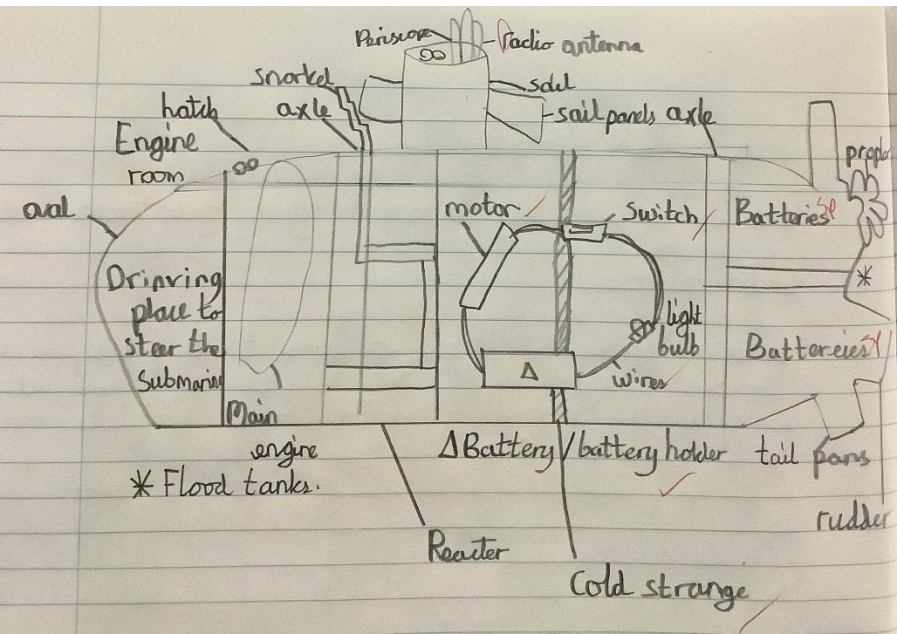 Periscope
Radio antenna
snorkel
sail
hatch
axle
sail panels
axle
Engine
room
oval
motor
switch
Batteries
sp
Drinving
place to
steer the
submarine
light
bulb
Battereies
wires
Main
engine
Δ
*
Δ Battery / battery holder
tail pans
* Flood tanks.
rudder
Reacter
Cold strange